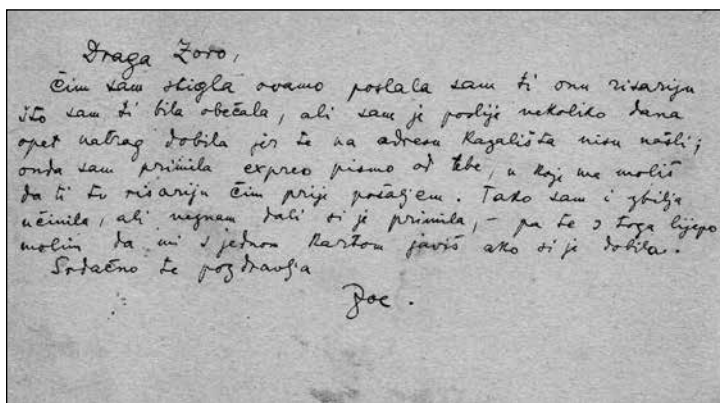 Draga Zoro,
čim sam stigla ovamo poslala sam ti onu risariju
što sam ti bila obečala, ali sam je poslije nekoliko dana
opet natrag dobila jer te na adresu Kazališta nisu našli;
onda sam primila expres pismo od tebe, u koje me moliš
da ti tu risariju čim prije pošaljem. Tako sam i zbilja
učinila, ali neznam dali si je primila, – pa te s toga lijepo
molim da mi s jednom kartom javiš ako si je dobila.
Srdačno te pozdravlja